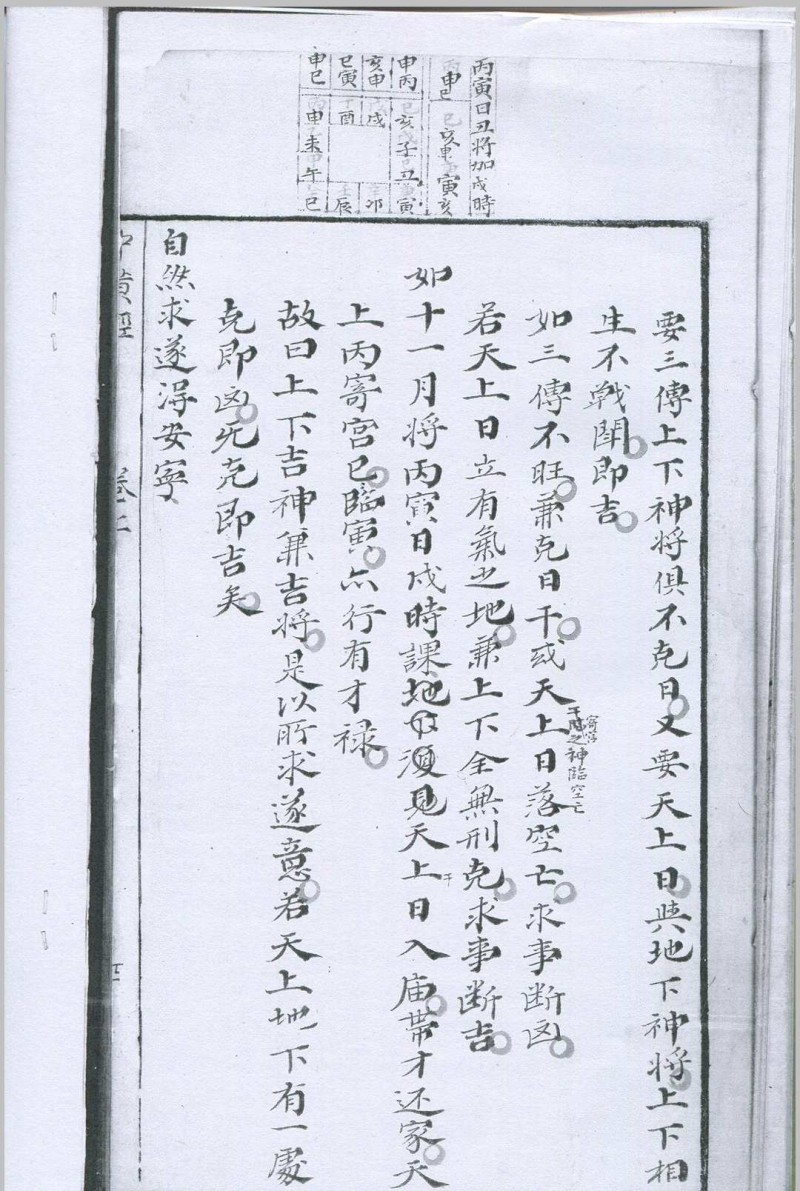 丙寅日丑將加戌時
丙申巳 巳亥申 寅亥
申丙 巳亥子丑寅
亥申 戌 卯
巳寅 酉 辰
申巳 申未午巳
要三傳上下神將俱不克日又要天上日與地下神將上下相
生不戰鬪即吉
如三傳不旺兼克日干或天上日落空亡求事斷凶
寄宮
干陽之神臨空亡
若天上日立有氣之地兼上下全無刑克求事斷吉
如十一月將丙寅日戌時課地中須見天上日入庙帶才还家天
干
上丙寄宮巳臨寅亦行有才禄
故曰上下吉神兼吉將是以所求遂意若天上地下有一處
克即凶旡克即吉矣
自然求遂得安寧
中黄經
卷二